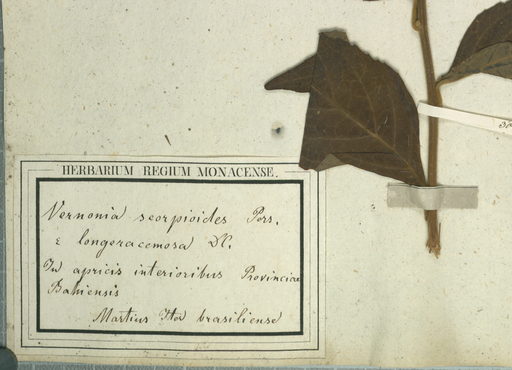 HERBARIUM REGIUM MONACENSE.
Vernonia scorpioides Pers.
ε longeracemosa DC.
In apricis interioribus Provinciae
Bahiensis
Martius Iter brasiliense